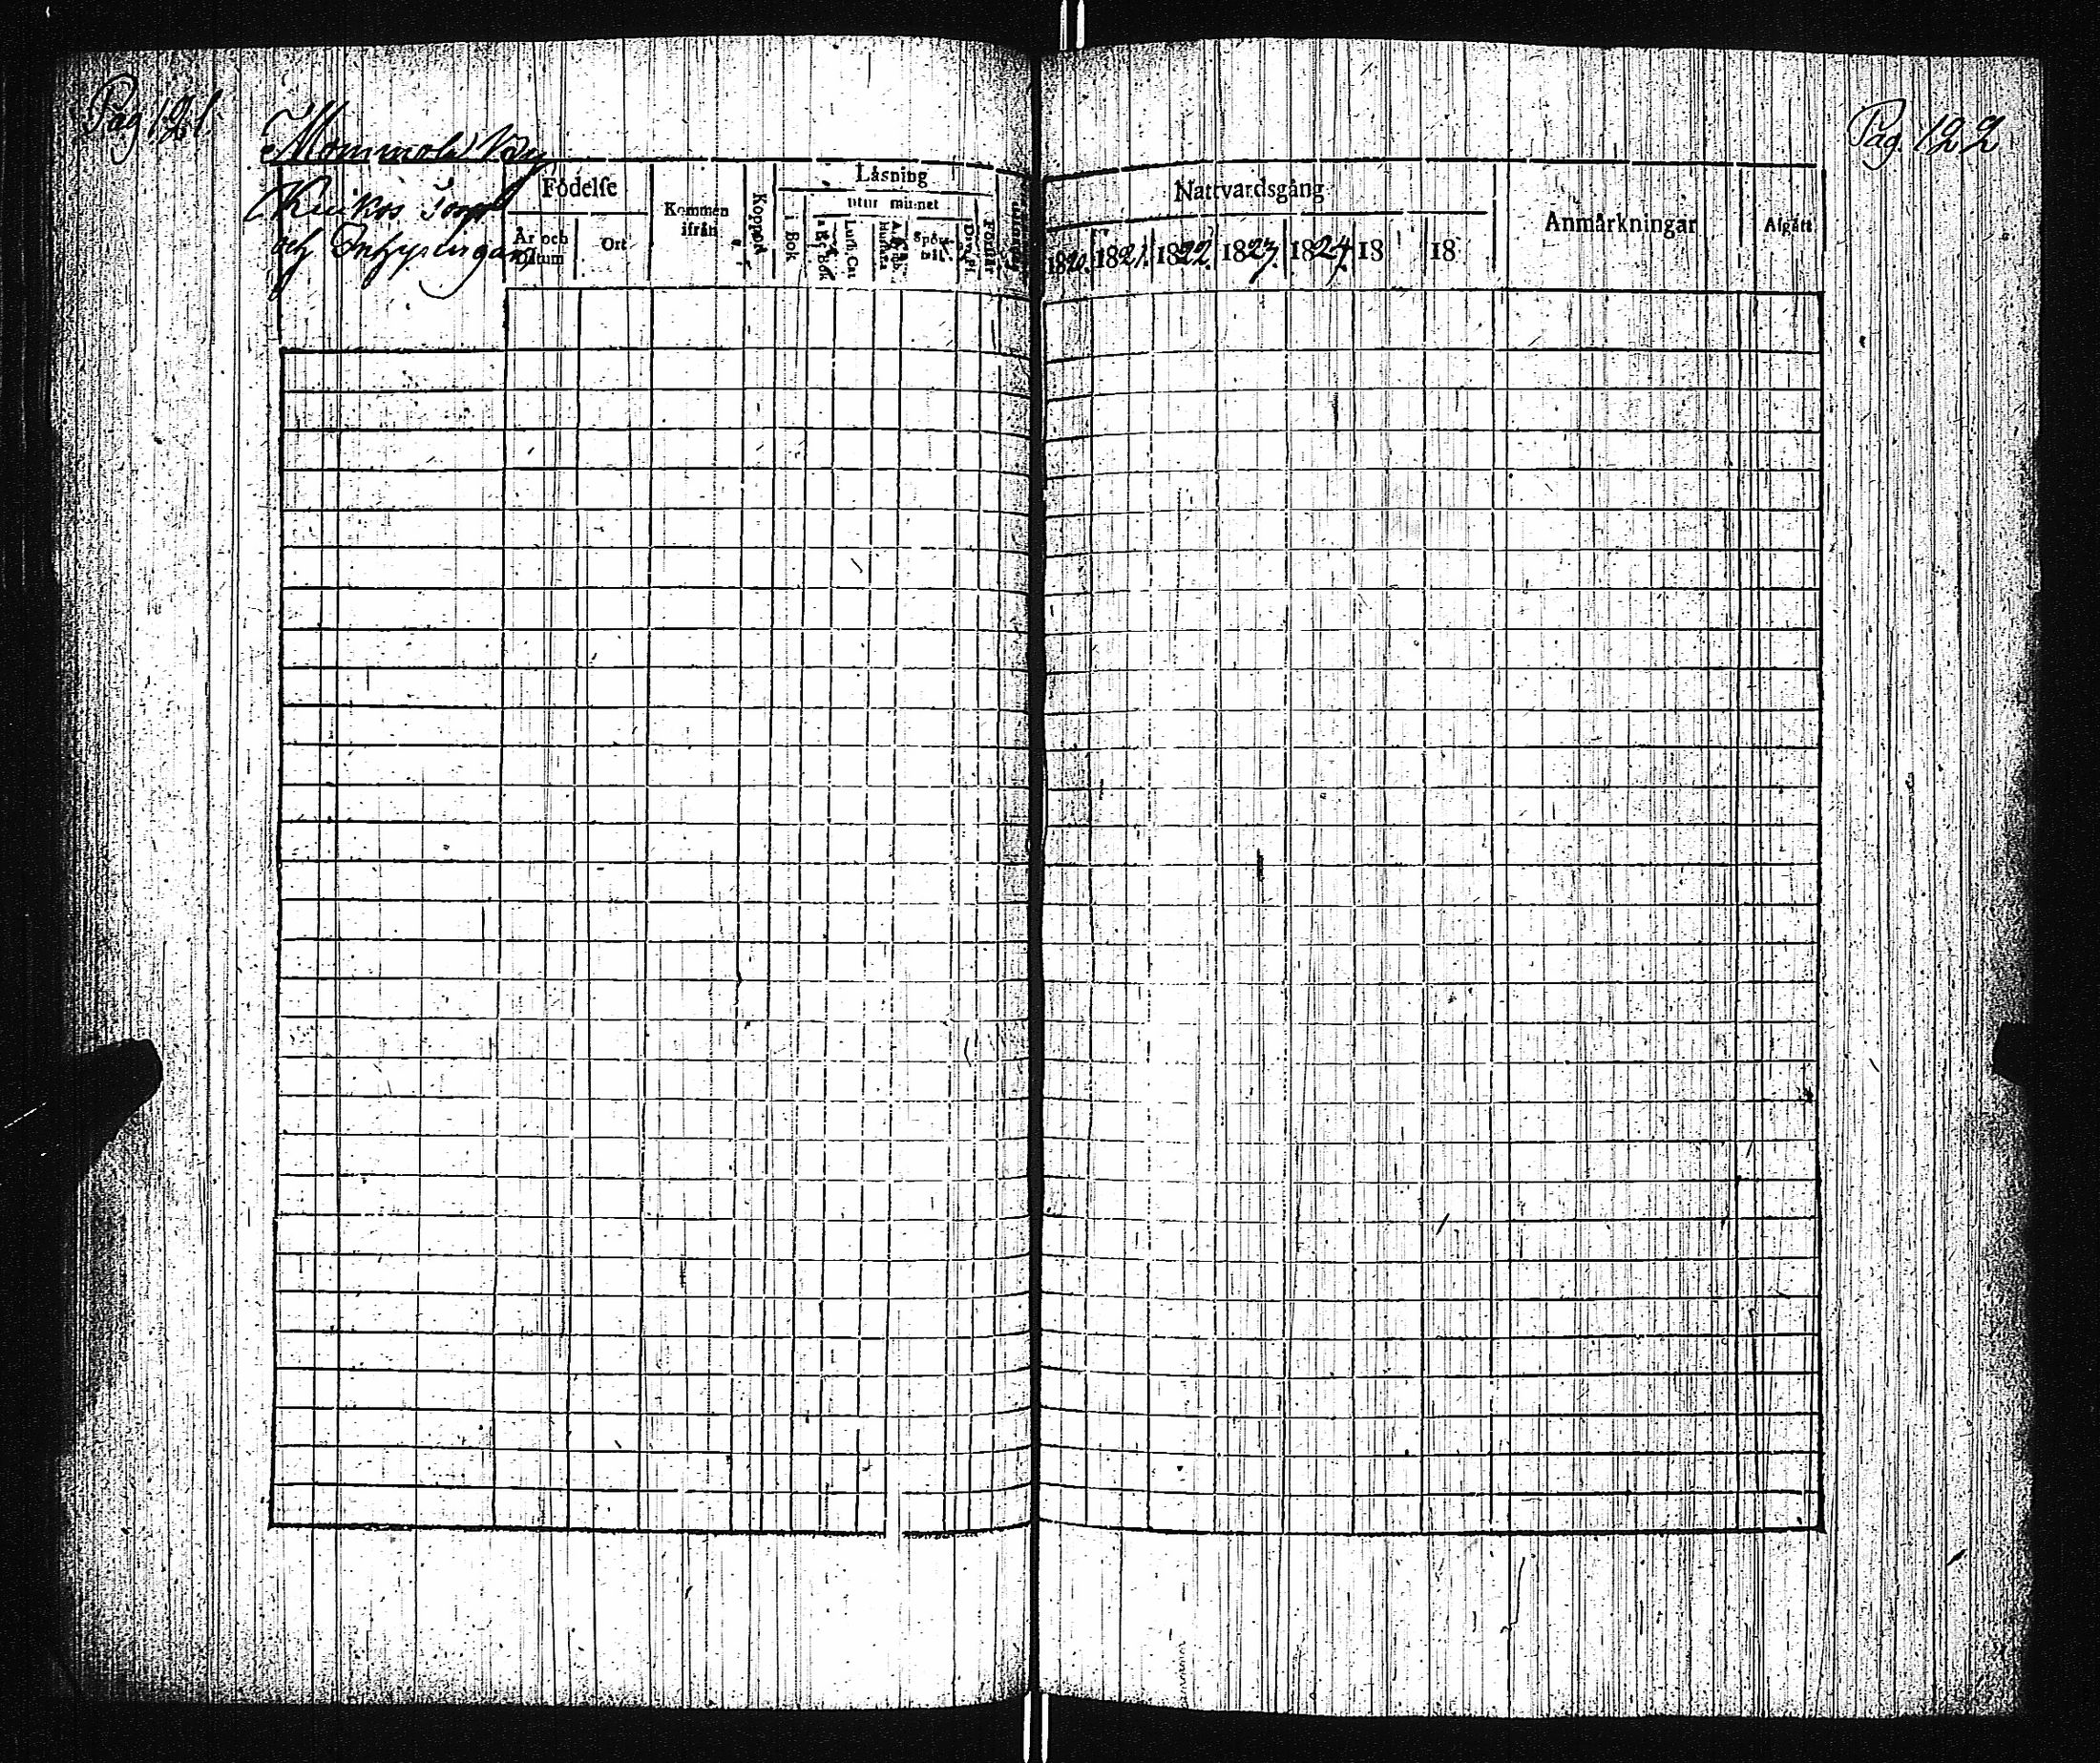 Pag 121.
Mommola By
Torp
och Inhysingar
Födelse
År och Datum
Ort
Kommen ifrån
Koppor
Läsning
utur minnet
i Bok
ABC Bok
Luth. Cat
Spörsmål
Förstår
Pag. 122
Nattvardsgång
1820. 1821. 1822. 1823. 1824. 18 18
Anmärkningar
Afgått